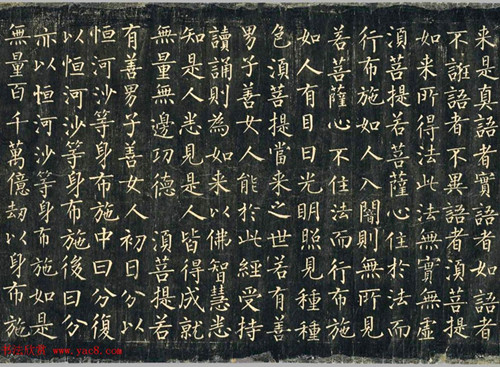 来是真語者實語者如語者
不誑語者不異語者須菩提
如来所得法此法無實無虛
須菩提若菩薩心住於法而
行布施如人入闇則無所見
若菩薩心不住法而行布施
如人有目日光明照見種種
色須菩提當来之世若有善
男子善女人能於此經受持
讀誦則為如来以佛智慧悉
知是人悉見是人皆得成就
無量無邊功德 須菩提若
有善男子善女人初日分以
恒河沙等身布施中日分復
以恒河沙等身布施後日分
亦以恒河沙等身布施如是
無量百千萬億劫以身布施
书法欣赏 www.yac8.com